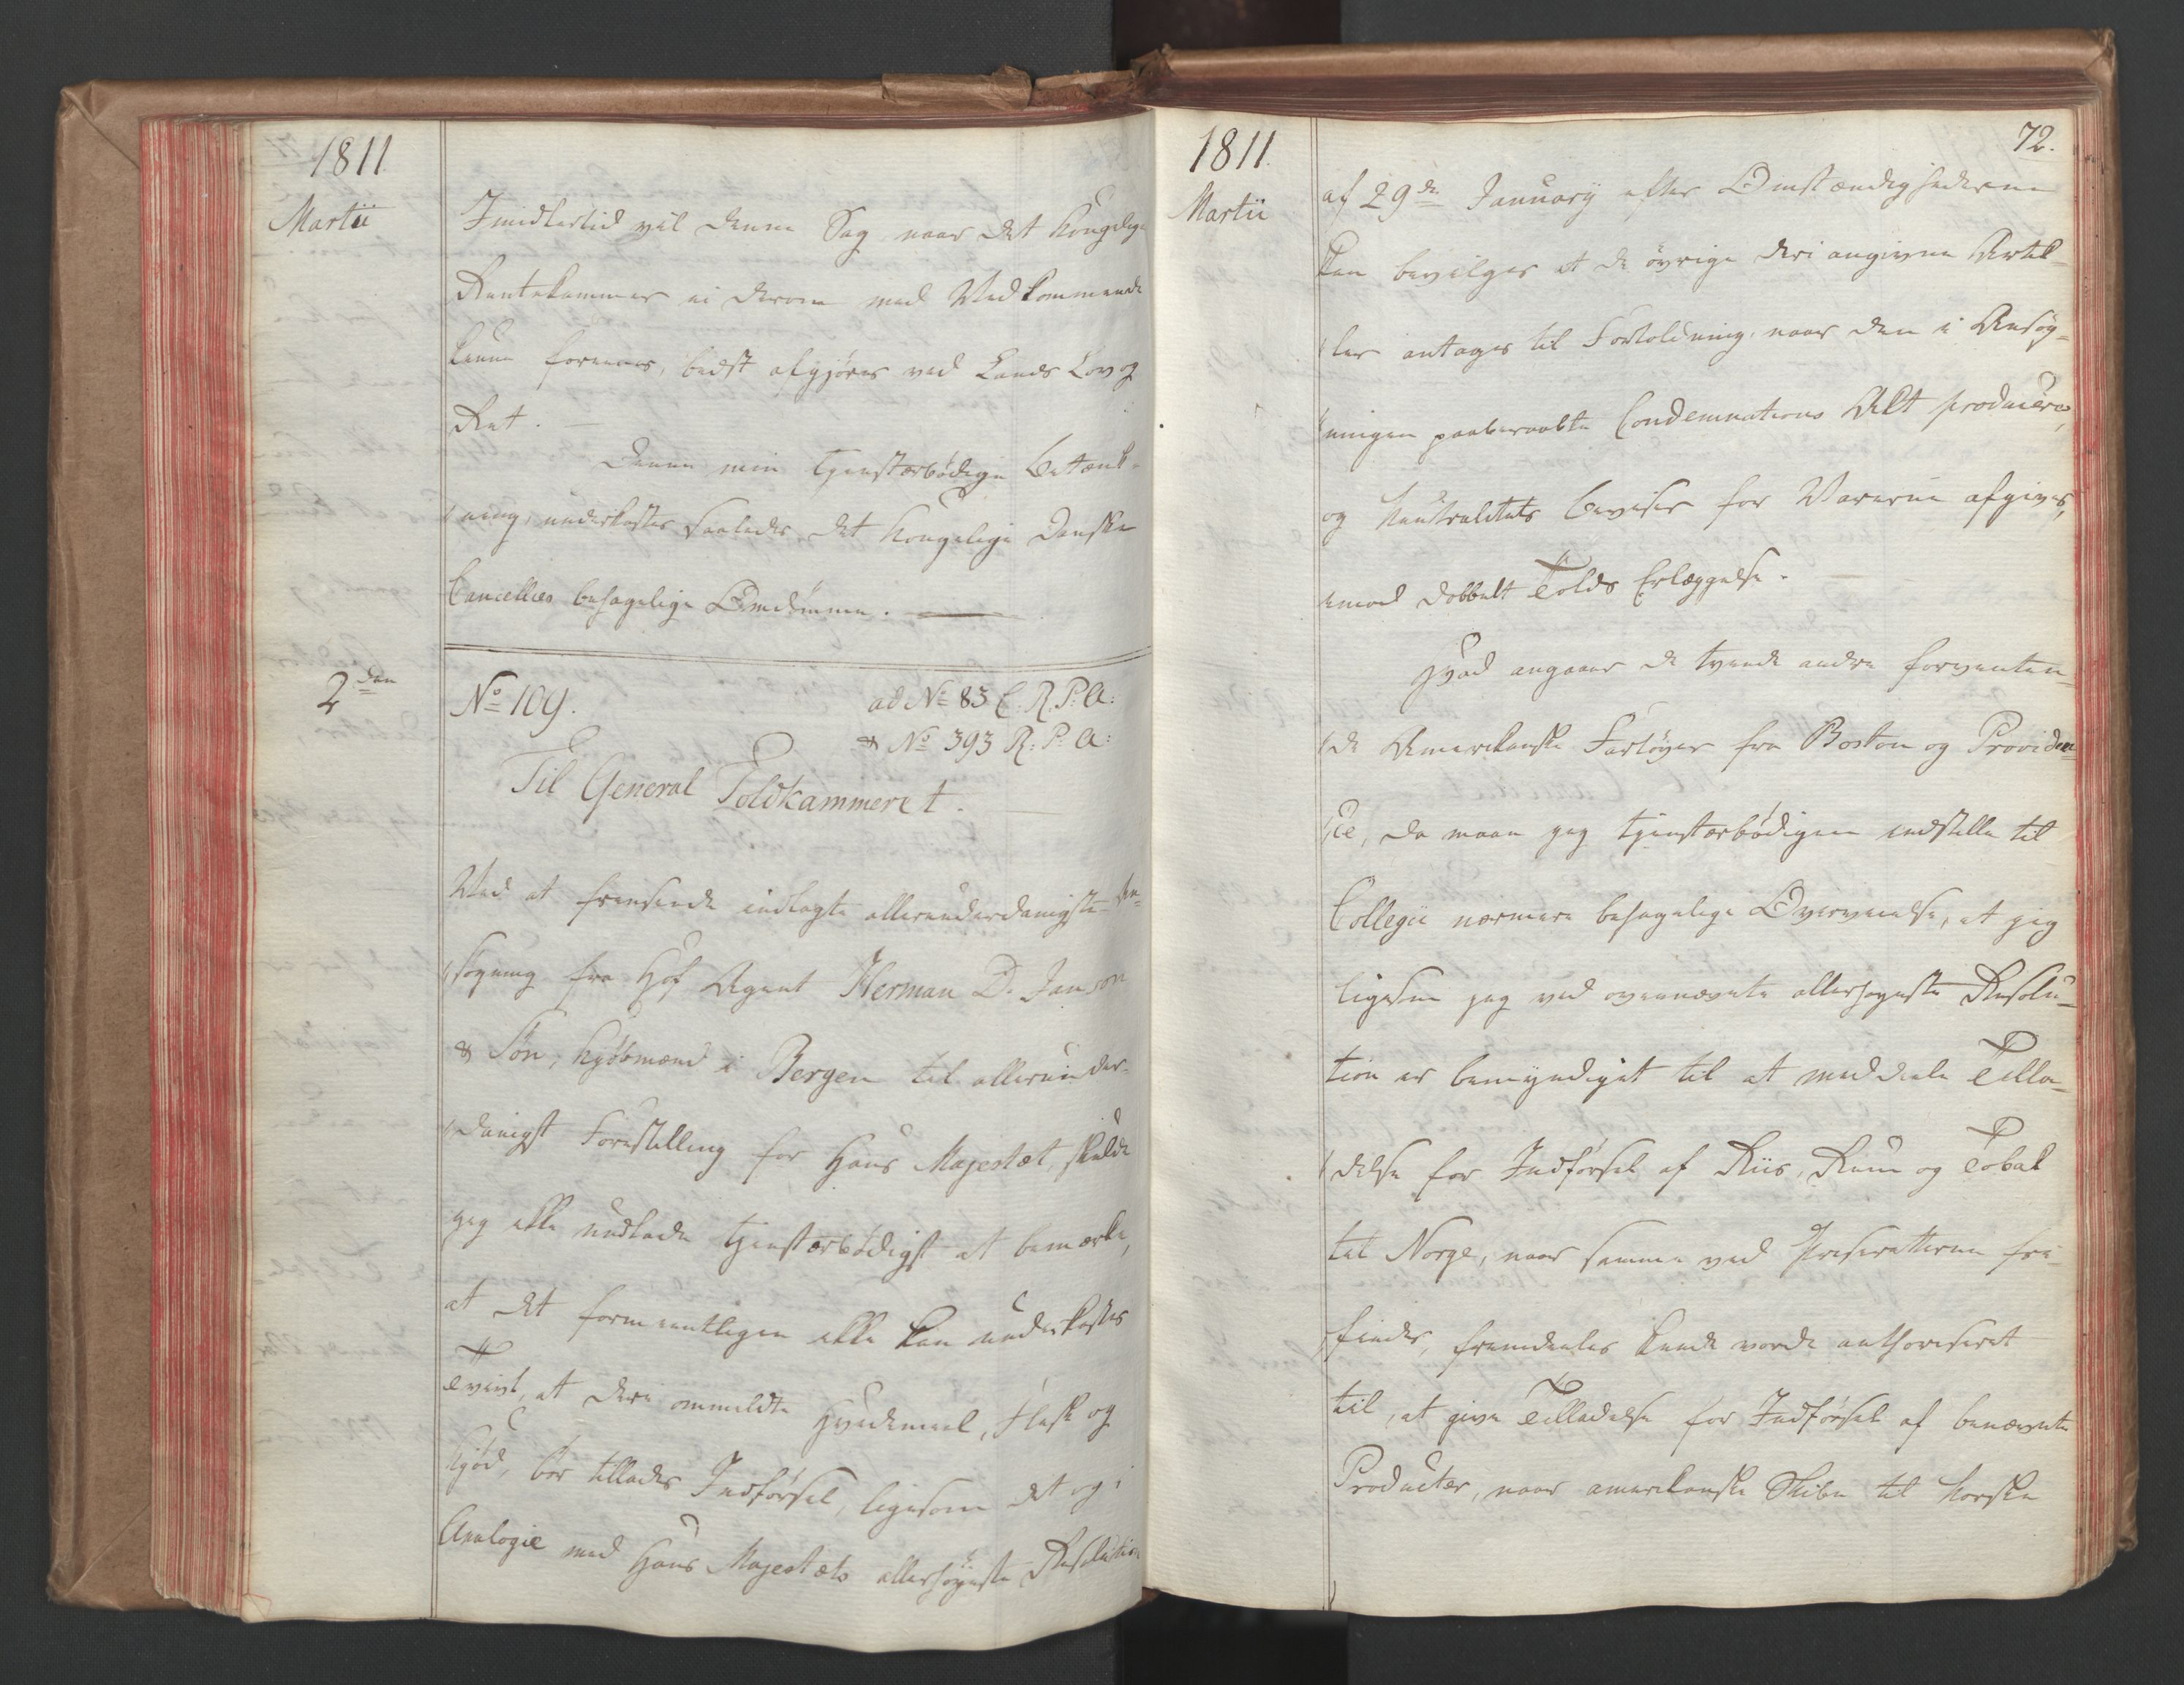 1811
Martii
Imidlertid vil denne Sag, naar det kongelige
Rentekammer ei derom med Vedkommende
kunne forenes, bedst afgjøres ved Lands Lov og
Ret. —
Denne min tjenstærbødige Betænk-
ning, underkastes saaledes det kongelige Danske
Cancellies behagelige Omdømme. —
2den
No 109.
ad No 83 C. R. P. A:
& No 393 R: P: A:
Til General Toldkammeret.
Ved at fremsende indlagte allerunderdanigste An-
søgning fra Hof Agent Herman D. Janson
& Søn, Kjøbmænd i Bergen til allerunder-
danigst Forestilling for Hans Majestæt, skulde
jeg ikke undlade tjenstærbødigst at bemærke,
at det formeentligen ikke kan underkastes
Tvivl, at deri ommeldte Hvedemeel, Flesk og
Kjød, bør tillades Indførsel, ligesom det og i
Analogie med Hans Majestæts allerhøjeste Resolution
1811
Martii
72.
af 29de Januarij efter Omstændighederne
kan bevilges at de øvrige deri angivne Artik-
ler antages til Fortoldning, naar den i Ansøg-
ningen paaberaabte Condemnations Akt produceres,
og Neutralitets Beviser for Varerne afgives,
imod dobbelt Tolds Erlæggelse. —
Hvad angaaer de tvende andre forventen-
de Amerikanske Fartøyer fra Boston og Providen-
ce, da maae jeg tjenstærbødigen indstille til
Collegii nærmere behagelige Overveielse, at jeg
ligesom jeg ved ovennævnte allerhøyeste Resolu-
tion er bemyndiget til at meddeele Tilla-
delse for Indførsel af Riis, Rum og Tobak
til Norge, naar samme ved Priseretterne fri-
findes, fremdeeles kunde vorde authoriseret
til, at give Tilladelse for Indførsel af benævnte
Producter, naar amerikanske Skibe til Norske